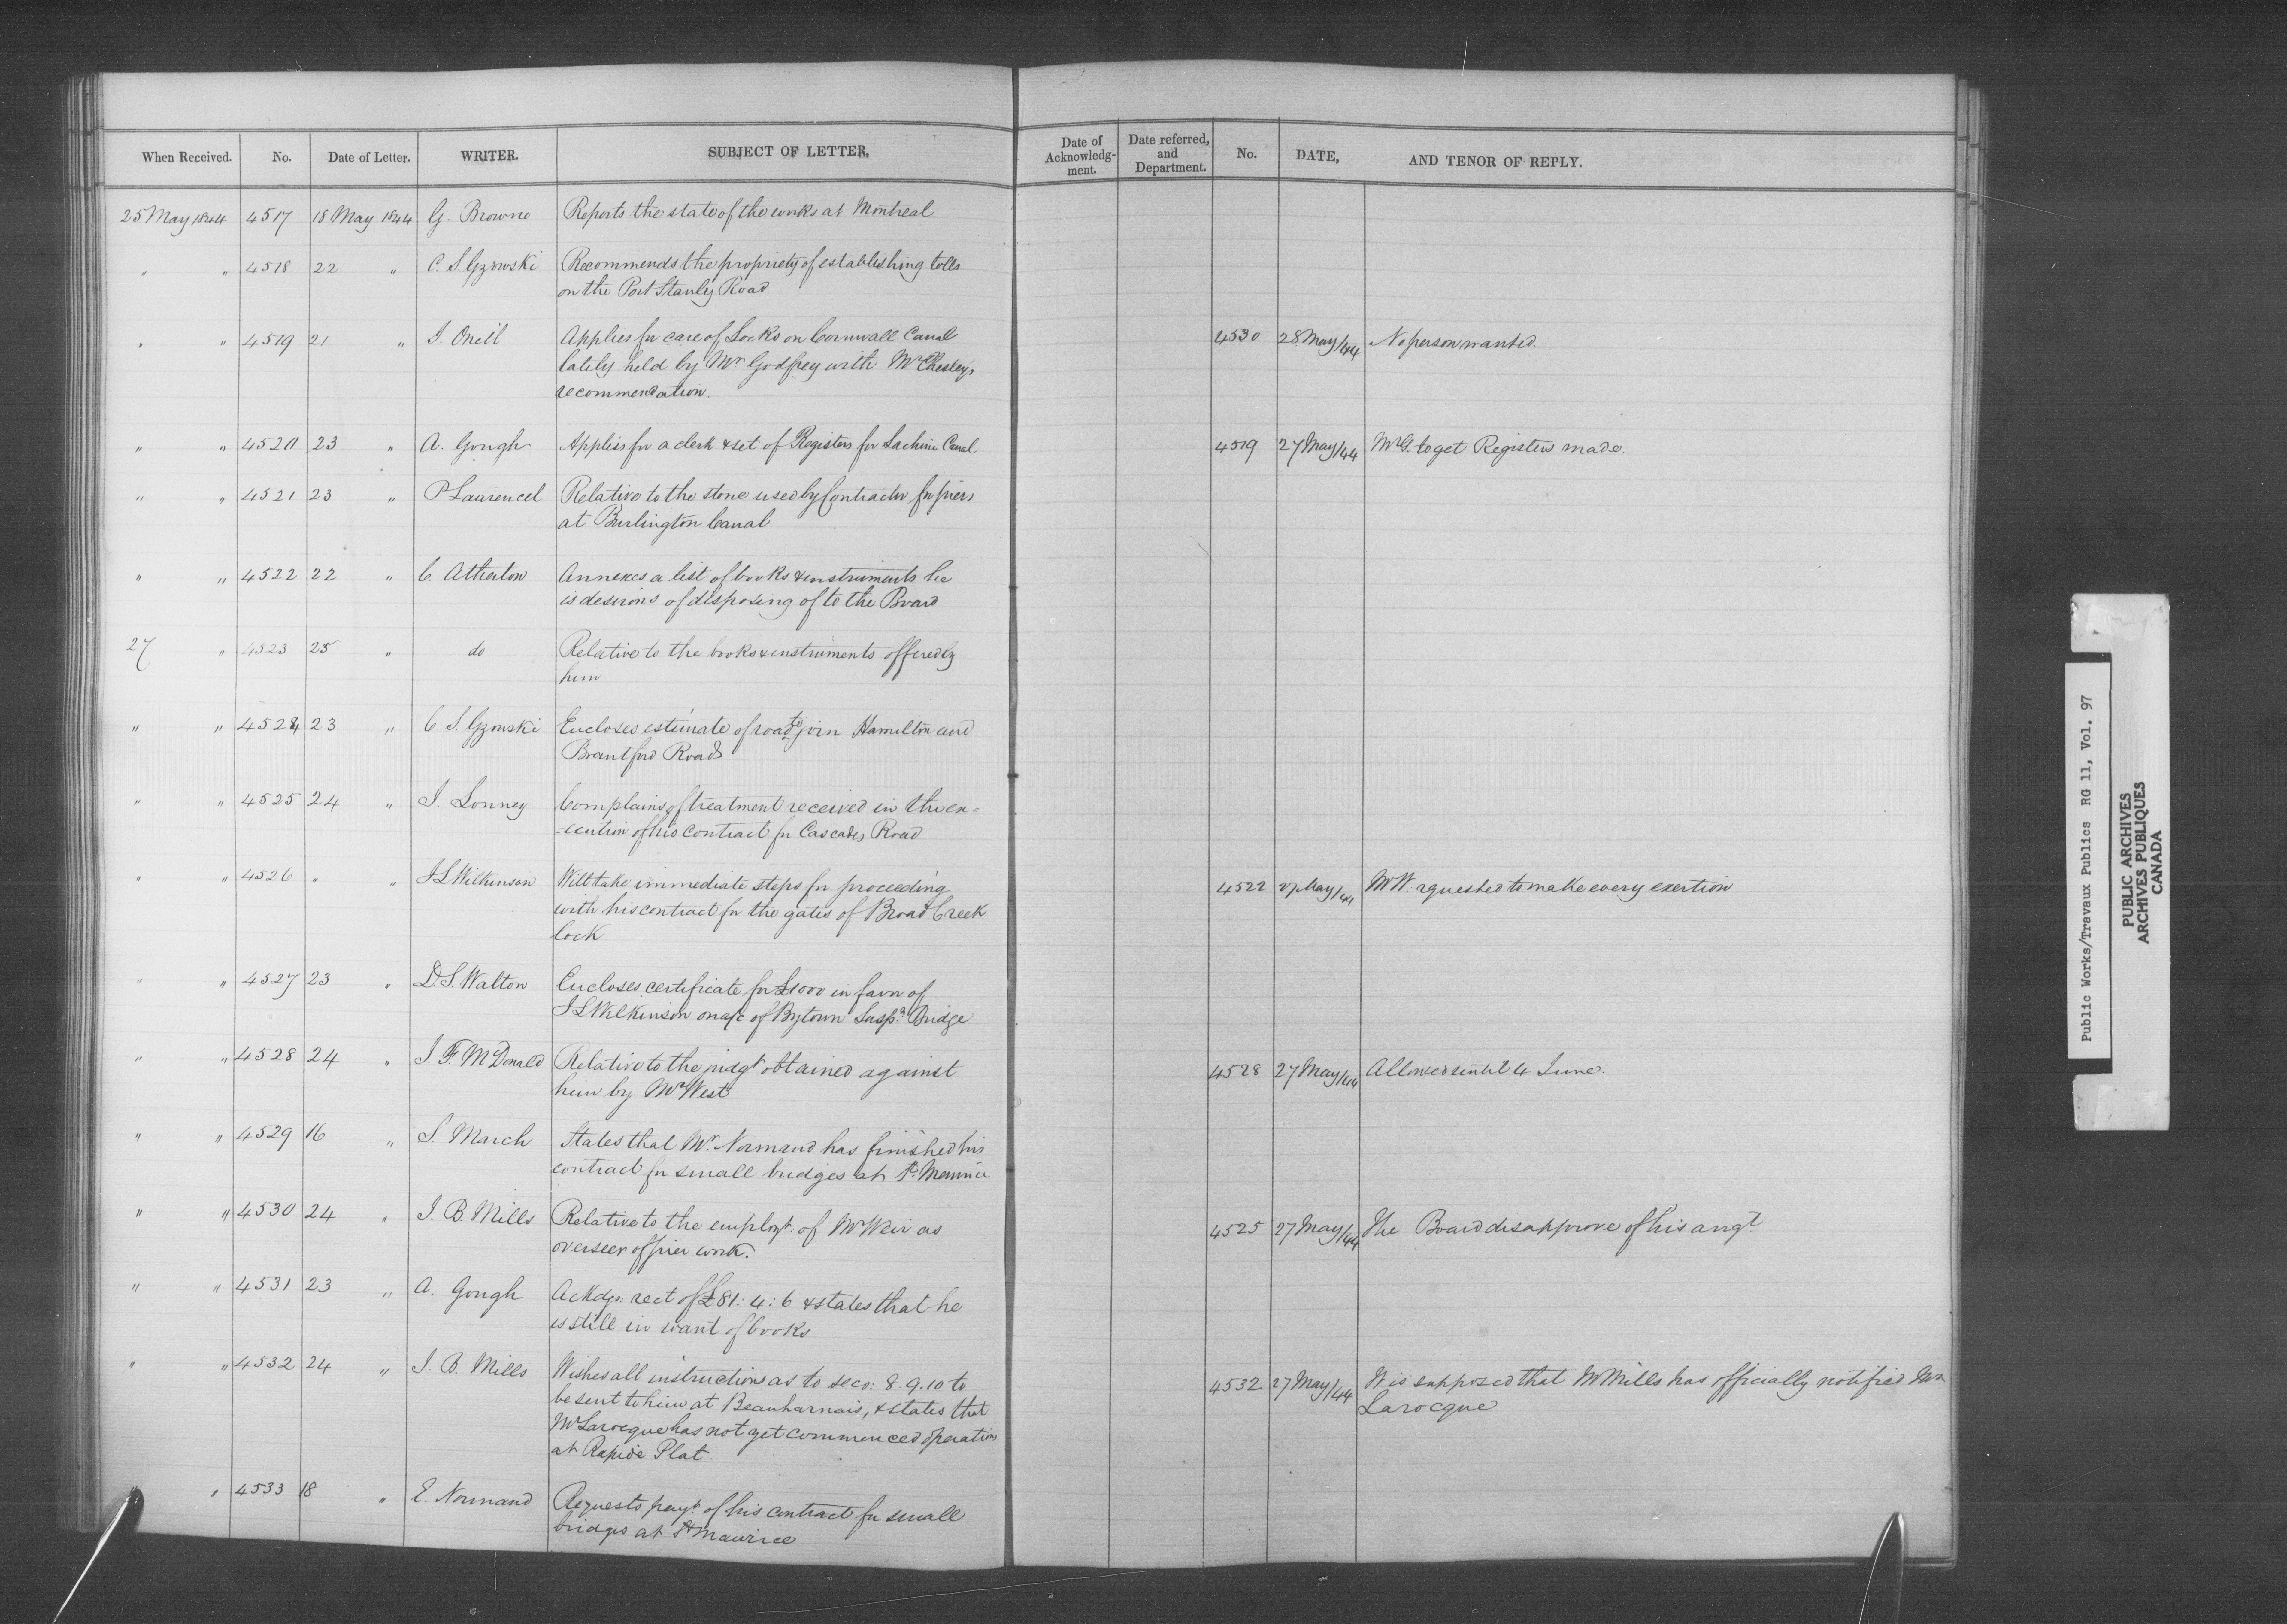 When Received. No. Date of Letter. WRITER. SUBJECT OF LETTER. Date of Acknowledg-ment. Date referred, and Department. No. DATE, AND TENOR OF REPLY.
25 May 1844 4517 18 May 1844 G. Browne Reports the state of the works at Montreal
" " 4518 22 " C. S. Gzowski Recommends the propriety of establishing tolls
on the Port Stanly Road
" " 4519 21 " J. Oneil Applies for care of Locks on Cornwall Canal 4530 28 May/44 No person wanted.
lately held by Mr Godfrey with Mr Chesley's
recommendation.
" " 4520 23 " A. Gough Applies for a clerk & set of Registers for Lachine Canal 4519 27 May/44 Mr G. to get Registers made.
" " 4521 23 " P Laurencel Relative to the stone used by Contractor for piers
at Burlington Canal
" " 4522 22 " C. Atherton Annexes a list of books & instruments he
is desirous of disposing of to the Board
27 " 4523 25 " do Relative to the books & instruments offered by
him
" " 4524 23 " C. S. Gzowski Encloses estimate of road to join Hamilton and
Brantford Roads
" " 4525 24 " J. Lonney Complains of treatment received in the ex=
=ecution of his contract for Cascades Road
" " 4526 " " J S Wilkinson Will take immediate steps for proceeding 4522 27 May/44 Mr W. requested to make every exertion
with his contract for the gates of Broad Creek
lock
" " 4527 23 " D. S. Walton Encloses certificate for £1000 in favor of
J S Wilkinson on a/c of Bytown Susp.n Bridge
" " 4528 24 " J. F. McDonald Relative to the judgt obtained against 4528 27 May/44 Allowed until 4 June.
him by Mr West
" " 4529 16 " S. March States that Mr. Normand has finished his
contract for small bridges at St. Maurice
" " 4530 24 " J. B. Mills Relative to the employt. of Mr Weir as 4525 27 May/44 The Board disapprove of his argt
overseer of pier work.
" " 4531 23 " A. Gough Ackdgs. rect of £81:4:6 & states that he
is still in want of books
" " 4532 24 " J. B. Mills Wishes all instructions as to secs: 8.9.10 to 4532 27 May/44 It is supposed that Mr Mills has officially notified Mr
be sent to him at Beauharnais, & states that Larocque
Mr Larocque has not yet commenced operations
at Rapide Plat.
" " 4533 18 " E. Normand Requests payt of his contract for small
bridges at St Maurice
Public Works/Travaux Publics RG 11, Vol. 97
PUBLIC ARCHIVES
ARCHIVES PUBLIQUES
CANADA